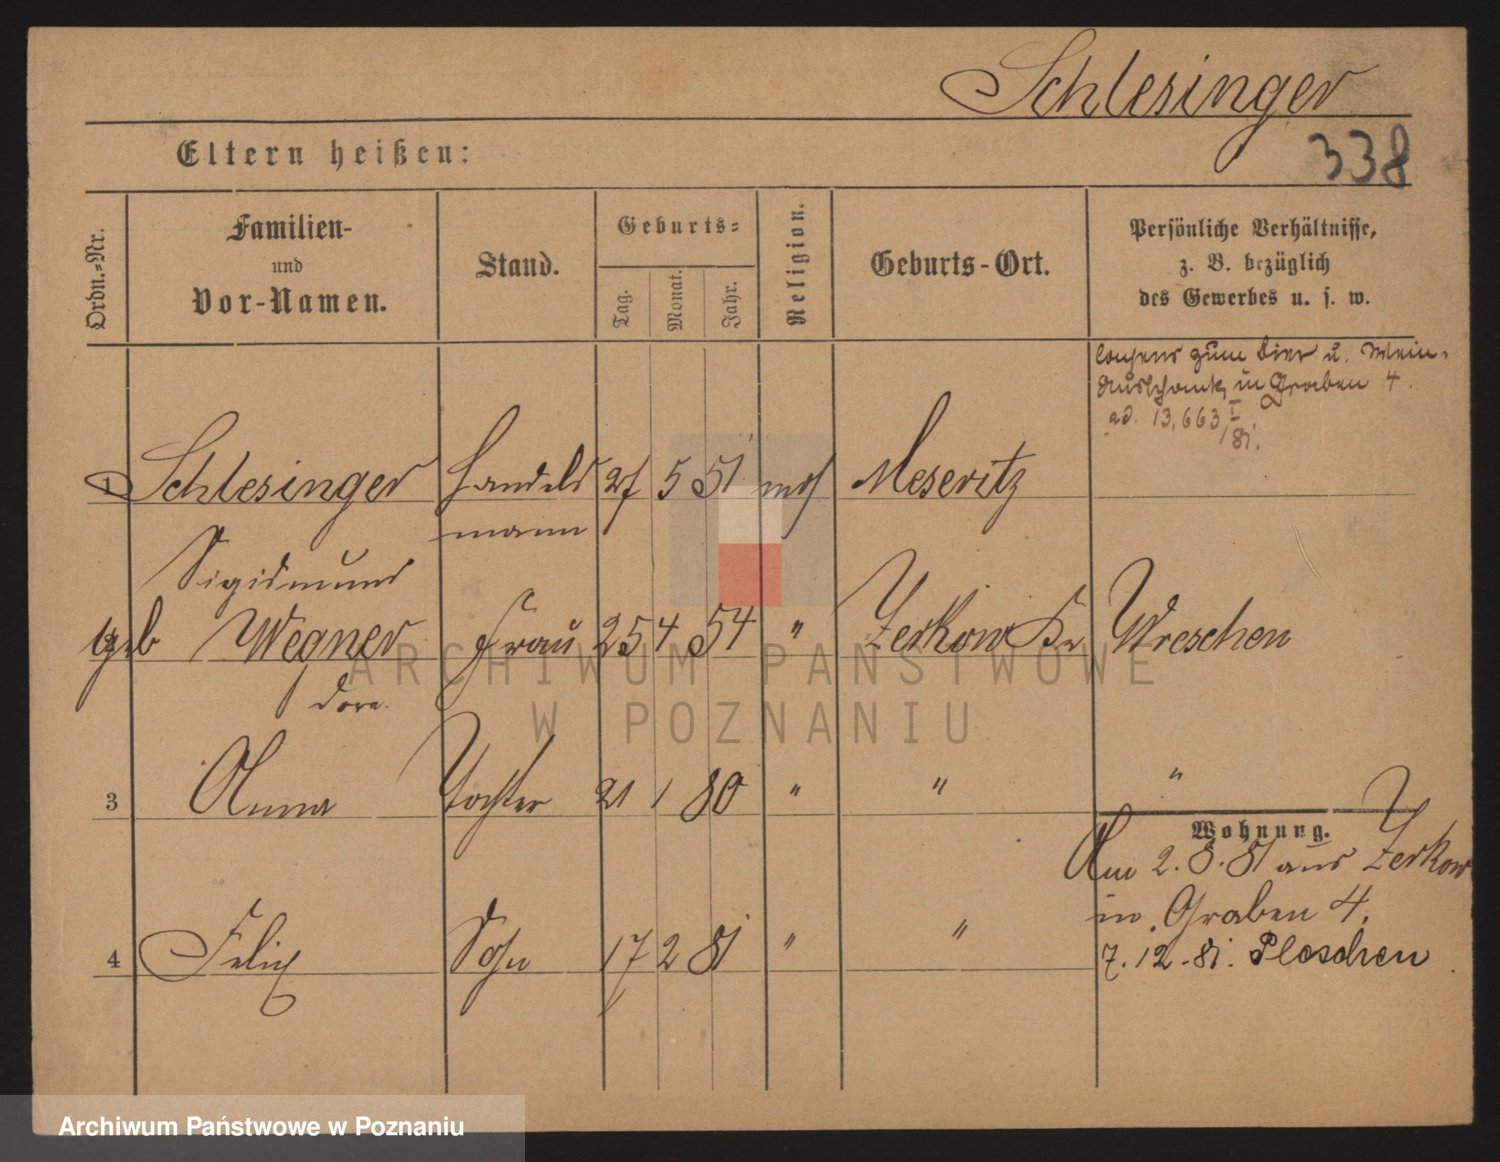 Schlesinger
Eltern heißen:
338
Ordn.-Nr.
Familien-
und
Vor-Namen.
Stand.
Geburts-
Tag.
Monat.
Jahr.
Religion.
Geburts-Ort.
Persönliche Verhältnisse,
z. B. bezüglich
des Gewerbes u. s. w.
zum Bier u. Wein-
Ausschank in Graben 4.
ad. 13,663 I
/81.
1 Schlesinger Handels 27 5 51 mos Meseritz
mann
Sigismund
geb Wegner Frau 25 4 54 " Zerkow Kr Wreschen
Dora
3 Anna Tochter 21 1 80 " " "
Wohnung.
Am 2. 8. 81 aus Zerkow
in Graben 4.
4 Felix Sohn 17 2 81 " "
7. 12. 81. Pleschen
ARCHIWUM PAŃSTWOWE
W POZNANIU
Archiwum Państwowe w Poznaniu